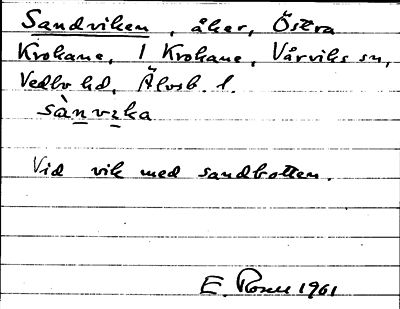 Sandviken, åker, Östra
Krokane, 1 Krokane, Vårviks sn,
Vedbo hd, Älvsb. l.
sànvɪka
Vid vik med sandbotten.
E. Rosell 1961